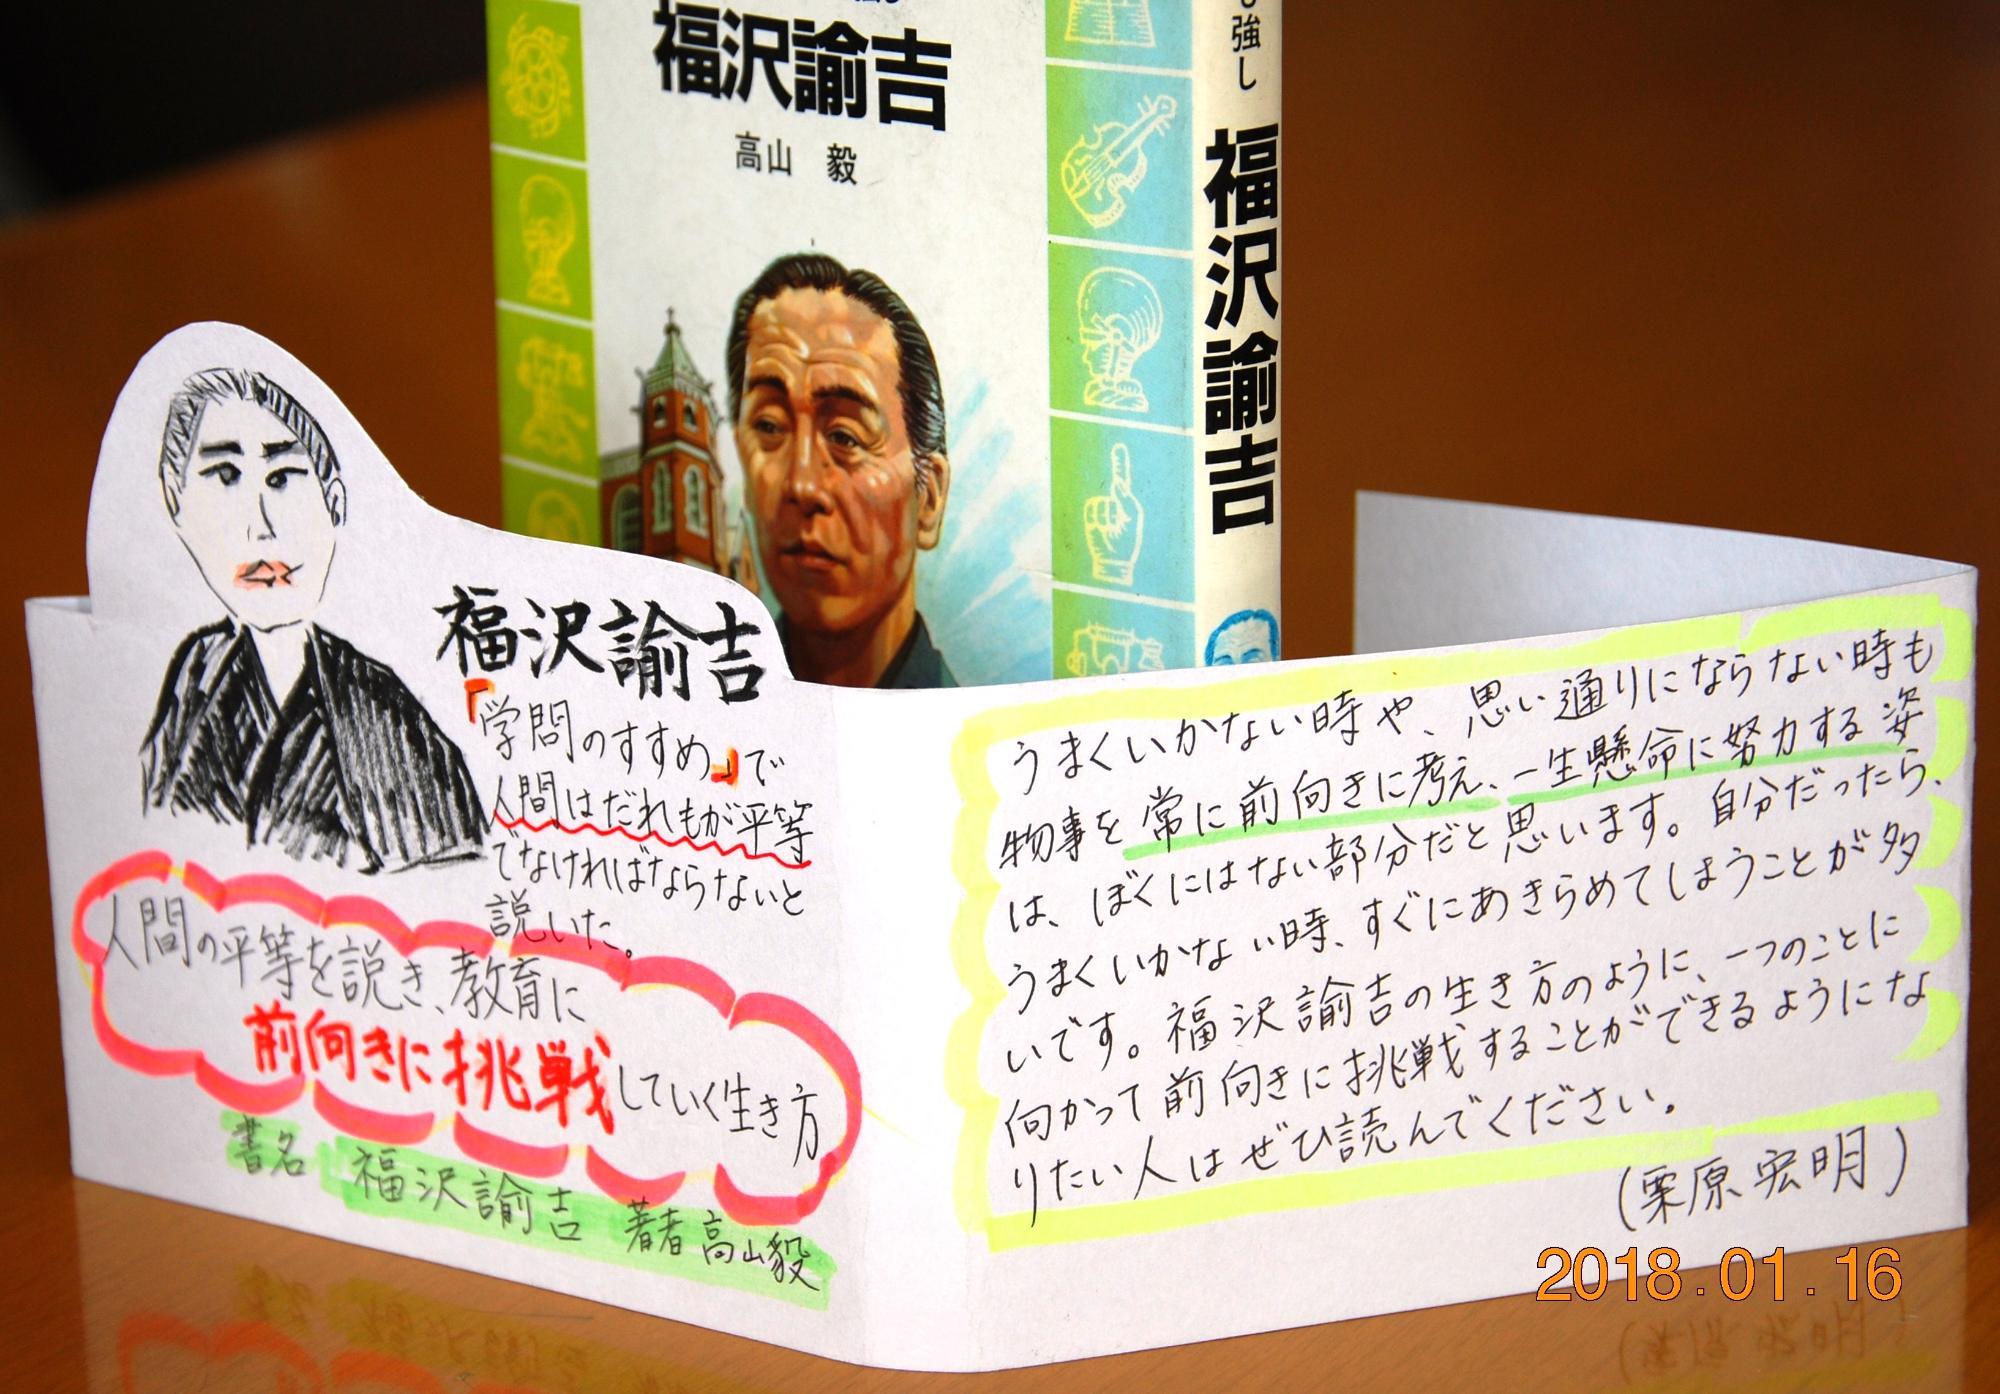 福沢諭吉
高山 毅
も強し
福沢諭吉
福沢諭吉
「学問のすすめ」で
人間はだれもが平等
でなければならないと
説いた。
人間の平等を説き、教育に
前向きに挑戦していく生き方
書名 福沢諭吉 著者 高山毅
うまくいかない時や、思い通りにならない時も
物事を常に前向きに考え、一生懸命に努力する姿
は、ぼくにはない部分だと思います。自分だったら、
うまくいかない時、すぐにあきらめてしまうことが多
いです。福沢諭吉の生き方のように、一つのことに
向かって前向きに挑戦することができるようにな
りたい人はぜひ読んでください。
(栗原宏明)
2018.01.16